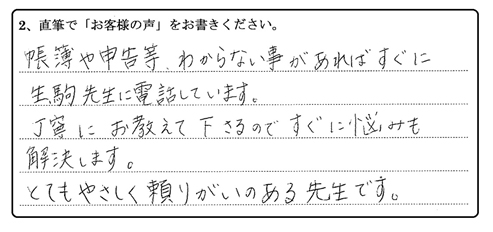 2、直筆で「お客様の声」をお書きください。
帳簿や申告等、わからない事があればすぐに
生駒先生に電話しています。
丁寧にお教えて下さるのですぐに悩みも
解決します。
とてもやさしく頼りがいのある先生です。